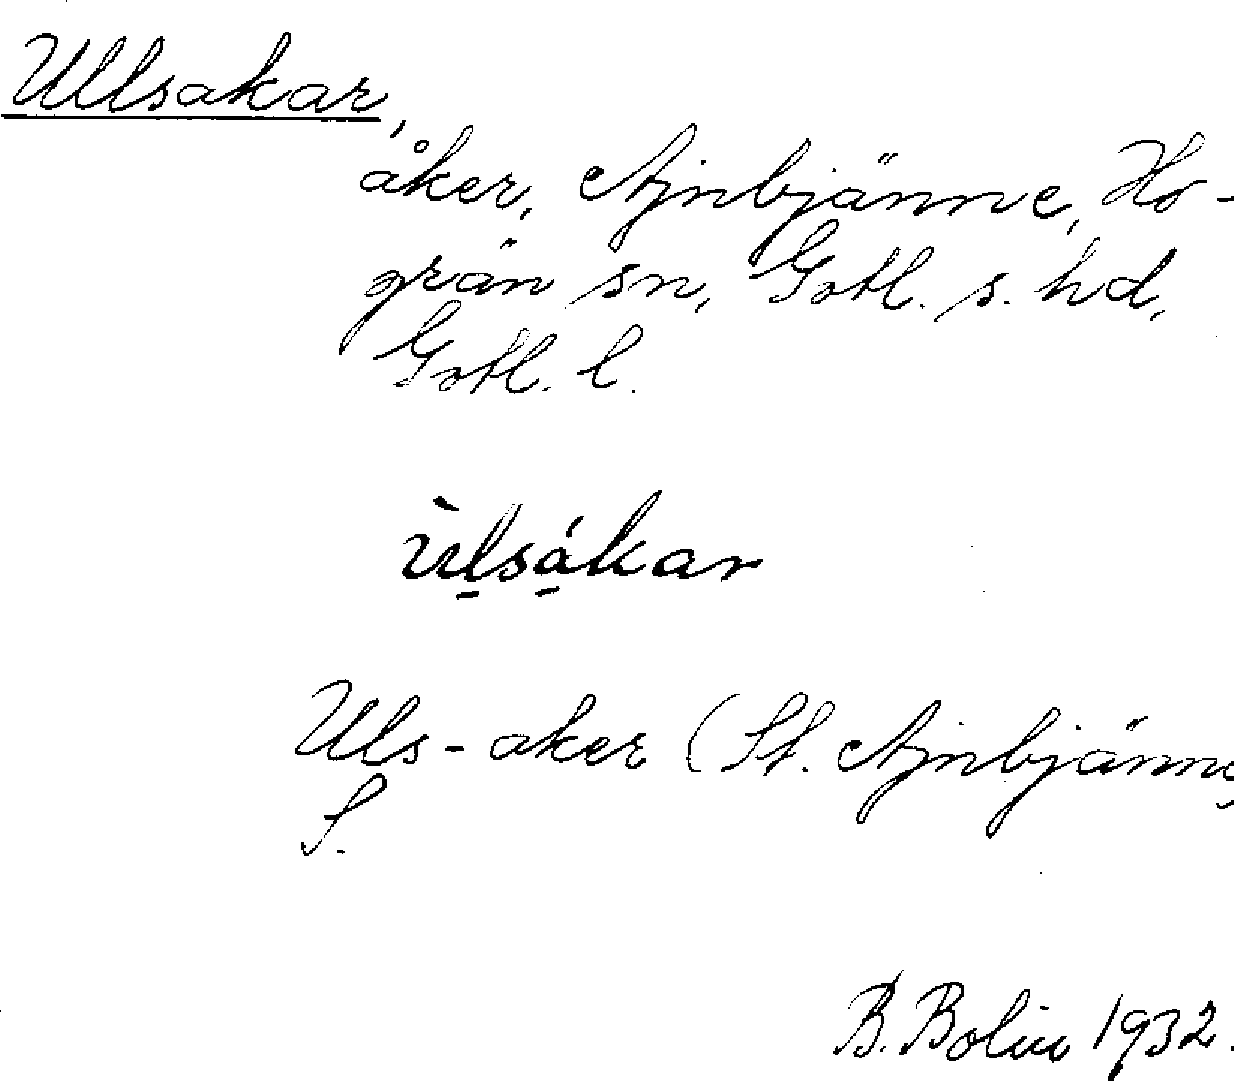 Ullsakar,
åker, Ajnbjänne, Ho-
grän sn, Gotl. s. hd,
Gotl. l.
ùl̠sá̠kar
Uls-aker (St. Ajnbjänne,
S.
B. Bolin 1932.